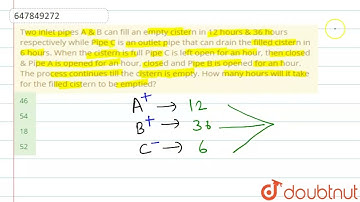 647849272
Two inlet pipes A & B can fill an empty cistern in 12 hours & 36 hours
respectively while Pipe C is an outlet pipe that can drain the filled cistern in
6 hours. When the cistern is full Pipe C is left open for an hour, then closed
& Pipe A is opened for an hour, closed and Pipe B is opened for an hour.
The process continues till the cistern is empty. How many hours will it take
for the filled cistern to be emptied?
46
54
18
52
A+ → 12
B+ → 36
C- → 6
doubtnut